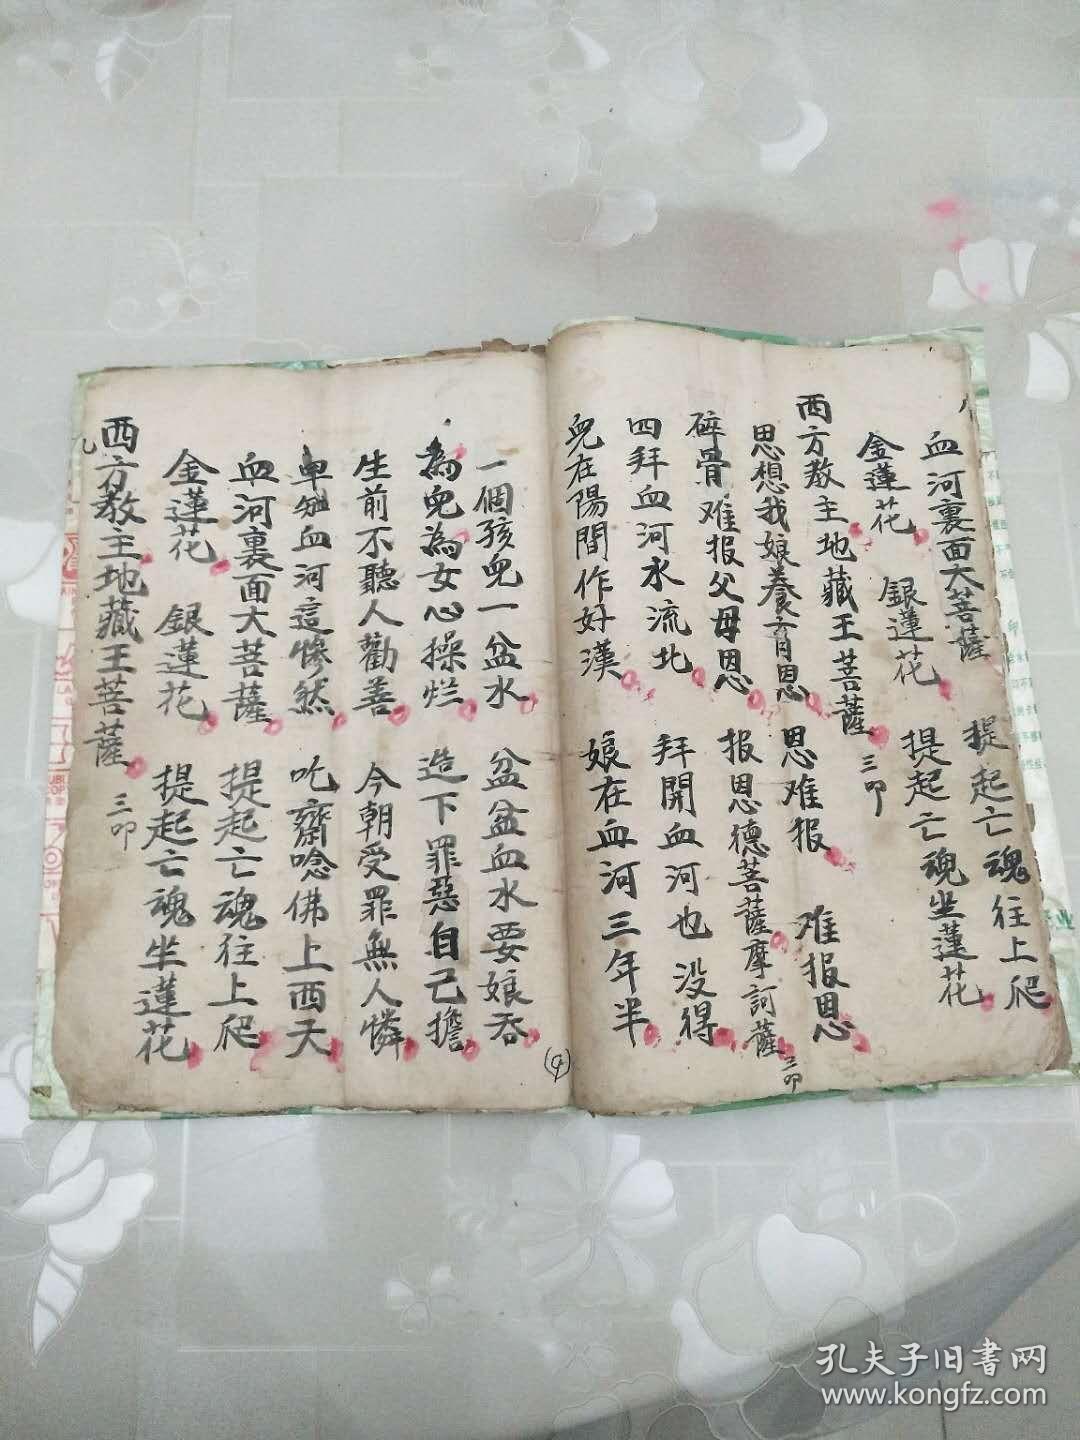 血河裏面大菩薩 提起亡魂往上爬
金蓮花 銀蓮花 提起亡魂坐蓮花
西方教主地藏王菩薩 三叩
思想我娘養育恩 恩难报 难报恩
碎骨难报父母恩 报恩德菩薩摩訶薩 三叩
四拜血河水流北 拜開血河也没得
兒在陽間作好漢 娘在血河三年半
一個孩兒一盆水 盆盆血水要娘吞
為兒為女心操烂 造下罪惡自己擔
生前不聽人勸善 今朝受罪無人憐
早知血河這慘然 吃齋唸佛上西天
血河裏面大菩薩 提起亡魂往上爬
金蓮花 銀蓮花 提起亡魂坐蓮花
西方教主地藏王菩薩 三叩
九
孔夫子旧書网
www.kongfz.com